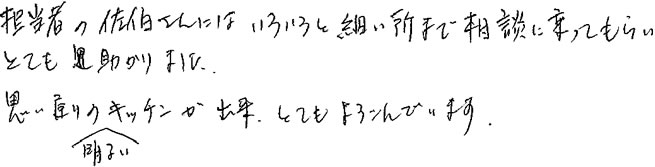 担当者の佐伯さんにはいろいろと細い所まで相談に乗ってもらい
とても助かりました。
思い通りのキッチンが出来、とてもよろこんでいます。
明るい